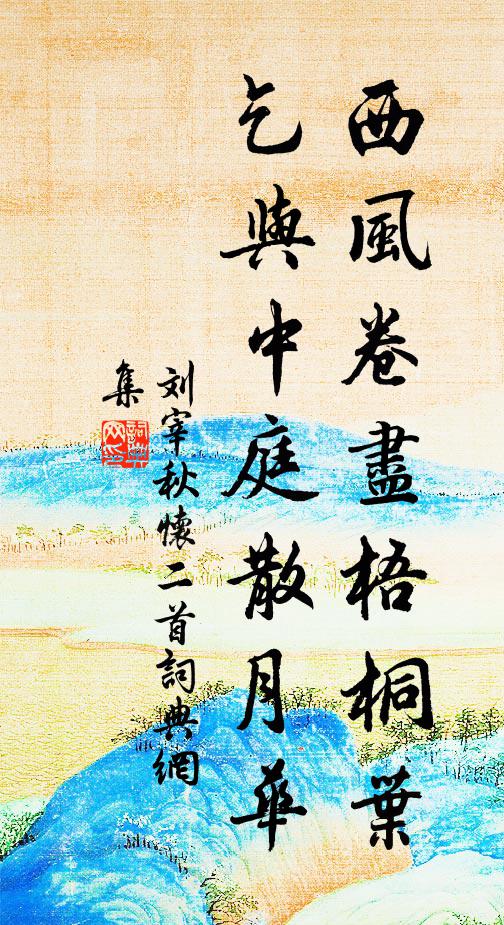 西風卷盡梧桐葉
乞與中庭散月華
刘宰秋懷二首詞典網
集